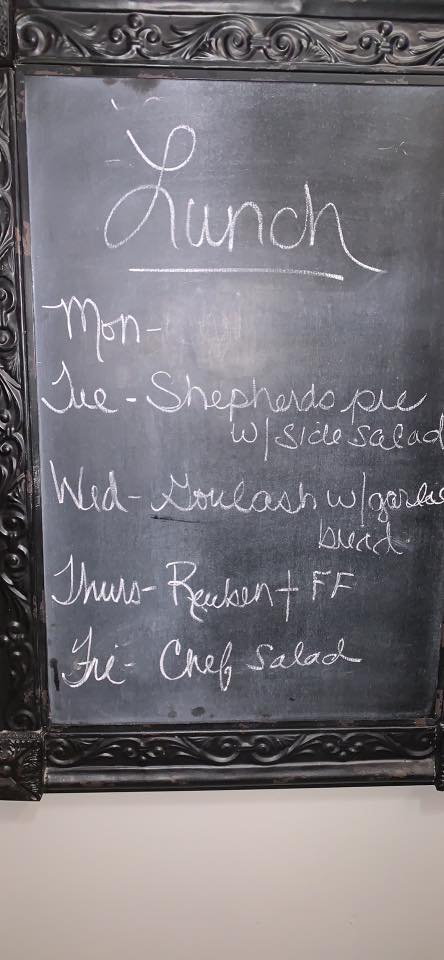 Lunch
Mon-
Tue - Shepherds pie
w/ side salad
Wed - Goulash w/garlic
bread
Thurs- Reuben + FF
Fri- Chef Salad